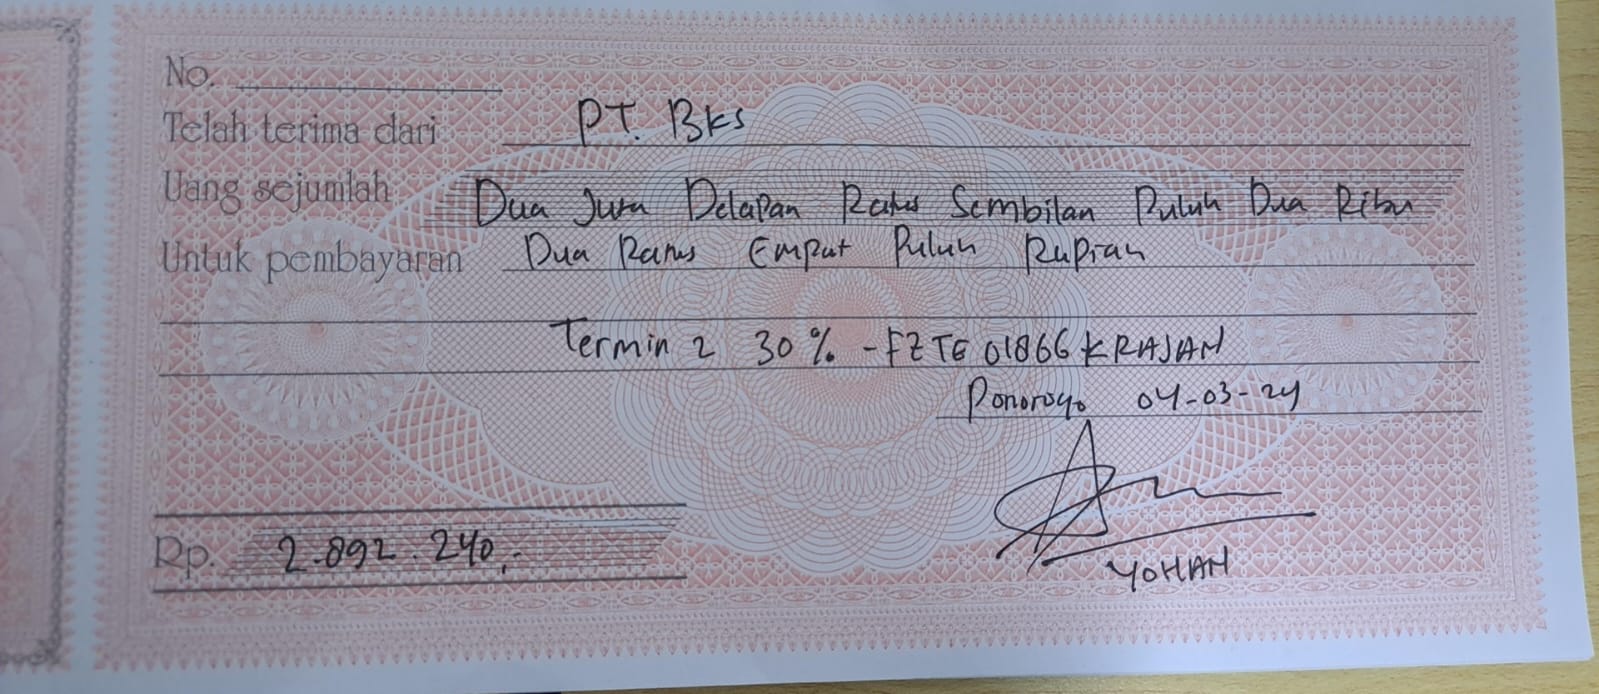 No.
Telah terima dari PT. BKS
Uang sejumlah Dua Juta Delapan Ratus Sembilan Puluh Dua Ribu
Untuk pembayaran Dua Ratus Empat Puluh Rupiah
Termin 2 30% - FZTE 01866 KRAJAN
Ponorogo 04-03-24
Rp. 2.892.240,-
YOHAN